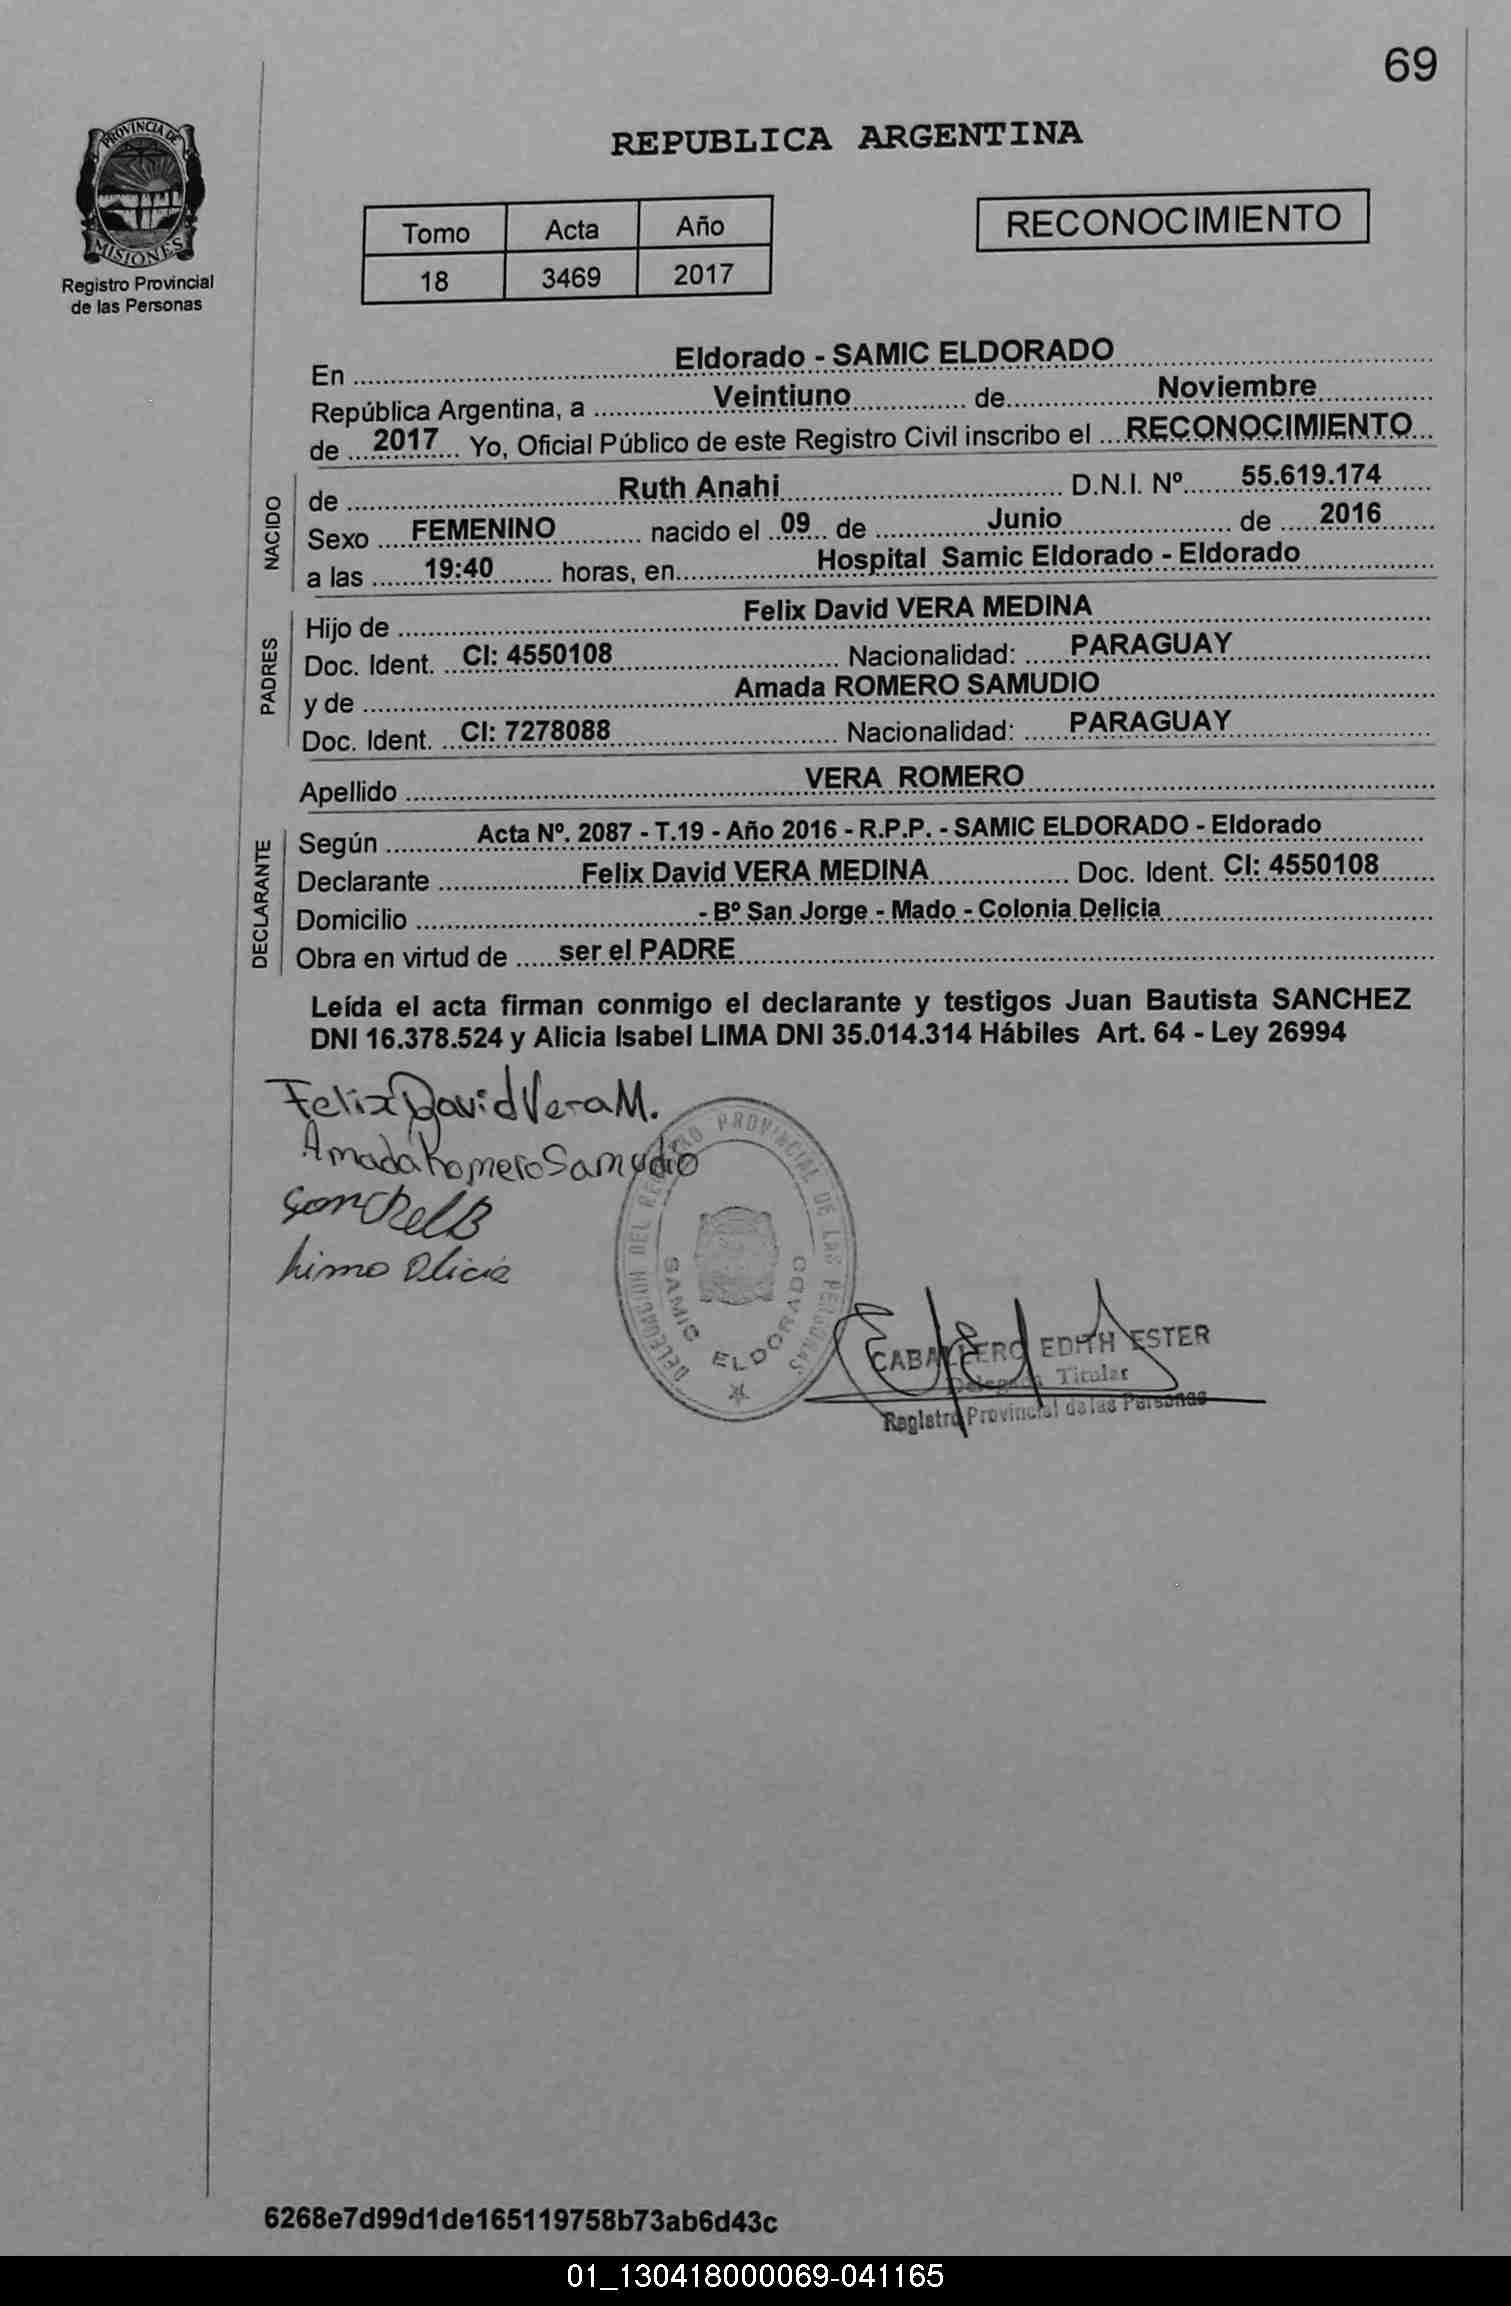 69
PROVINCIA DE
MISIONES
Registro Provincial
de las Personas
REPUBLICA ARGENTINA
Tomo Acta Año
18 3469 2017
RECONOCIMIENTO
En Eldorado - SAMIC ELDORADO
República Argentina, a Veintiuno de Noviembre
de 2017 Yo, Oficial Público de este Registro Civil inscribo el RECONOCIMIENTO
NACIDO
de Ruth Anahi D.N.I. Nº 55.619.174
Sexo FEMENINO nacido el 09 de Junio de 2016
a las 19:40 horas, en Hospital Samic Eldorado - Eldorado
PADRES
Hijo de Felix David VERA MEDINA
Doc. Ident. CI: 4550108 Nacionalidad: PARAGUAY
y de Amada ROMERO SAMUDIO
Doc. Ident. CI: 7278088 Nacionalidad: PARAGUAY
Apellido VERA ROMERO
DECLARANTE
Según Acta Nº. 2087 - T.19 - Año 2016 - R.P.P. - SAMIC ELDORADO - Eldorado
Declarante Felix David VERA MEDINA Doc. Ident. CI: 4550108
Domicilio - Bº San Jorge - Mado - Colonia Delicia
Obra en virtud de ser el PADRE
Leída el acta firman conmigo el declarante y testigos Juan Bautista SANCHEZ
DNI 16.378.524 y Alicia Isabel LIMA DNI 35.014.314 Hábiles Art. 64 - Ley 26994
Felix David Vera M.
Amada Romero Samudio
Lima Alicia
DELEGACION DEL REGISTRO PROVINCIAL DE LAS PERSONAS
SAMIC ELDORADO
CABALLERO EDITH ESTER
Delegada Titular
Registro Provincial de las Personas
6268e7d99d1de165119758b73ab6d43c
01_130418000069-041165